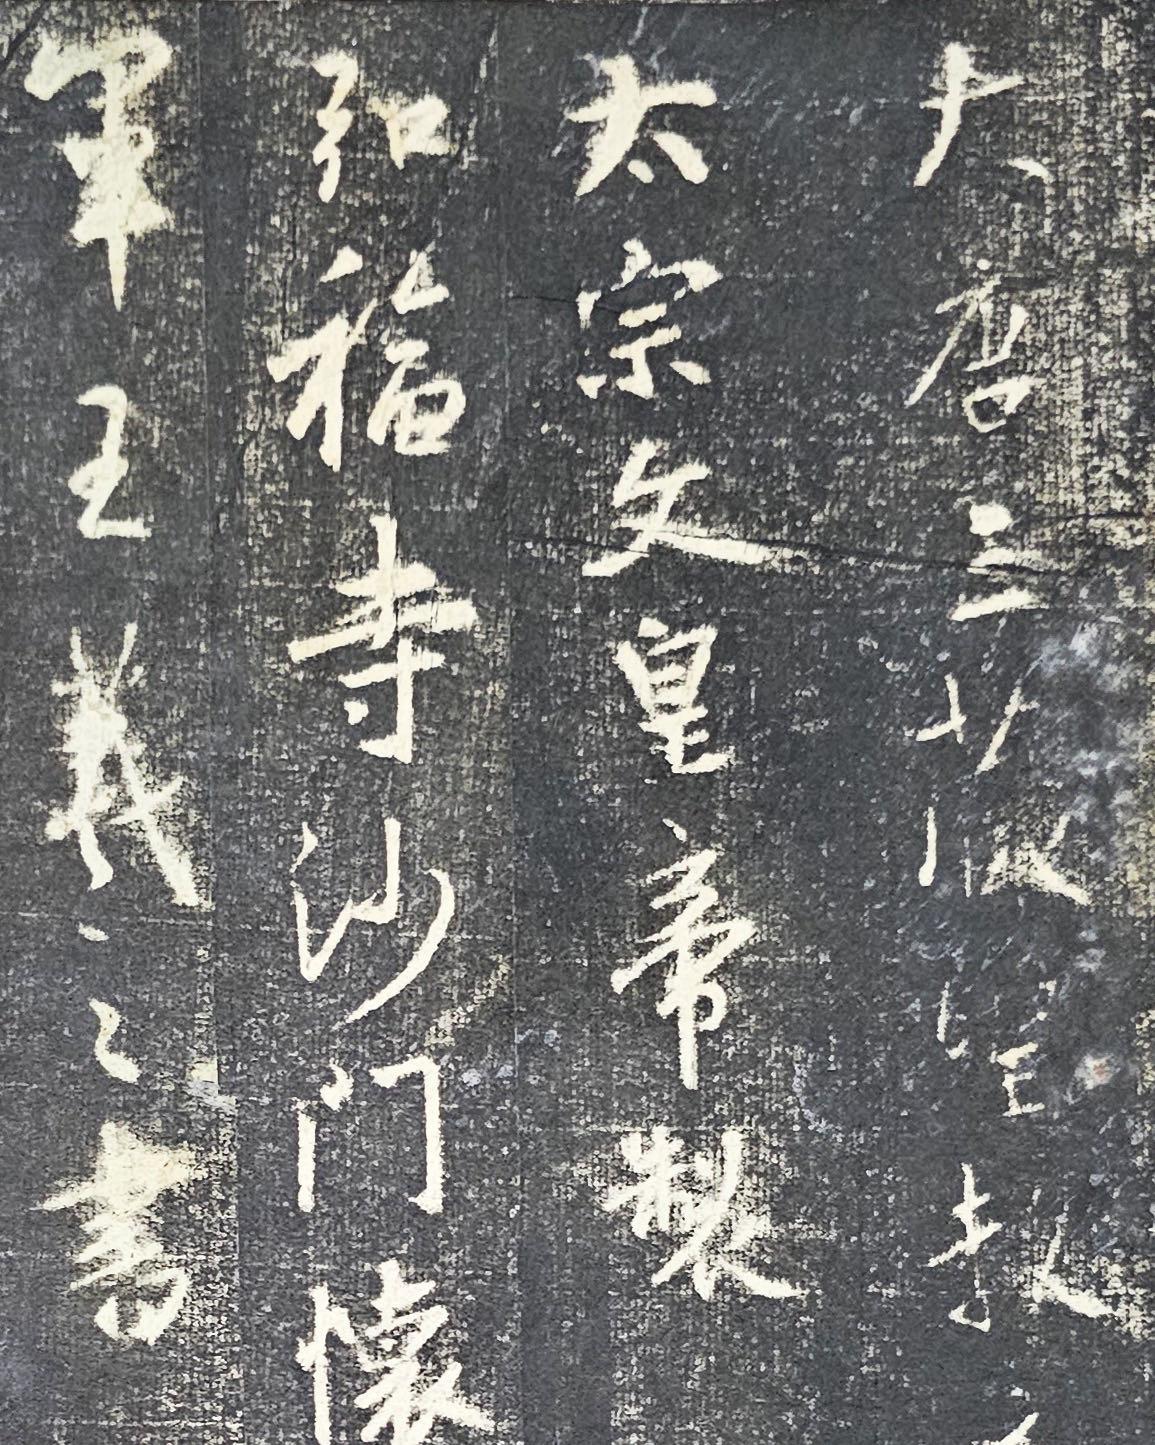 大唐三藏聖教
太宗文皇帝製
弘福寺沙門懷
軍王羲之書